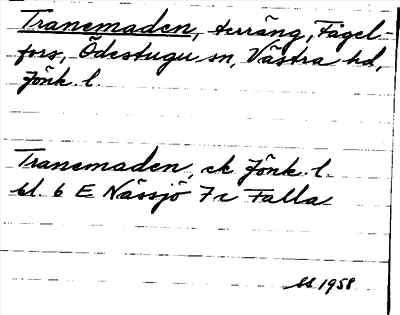 Tranemaden, terräng, Fågel-
fors, Ödestugu sn, Västra hd,
Jönk. l.
Tranemaden, ek Jönk. l.
bl. 6 E Nässjö 7c Falla
1958